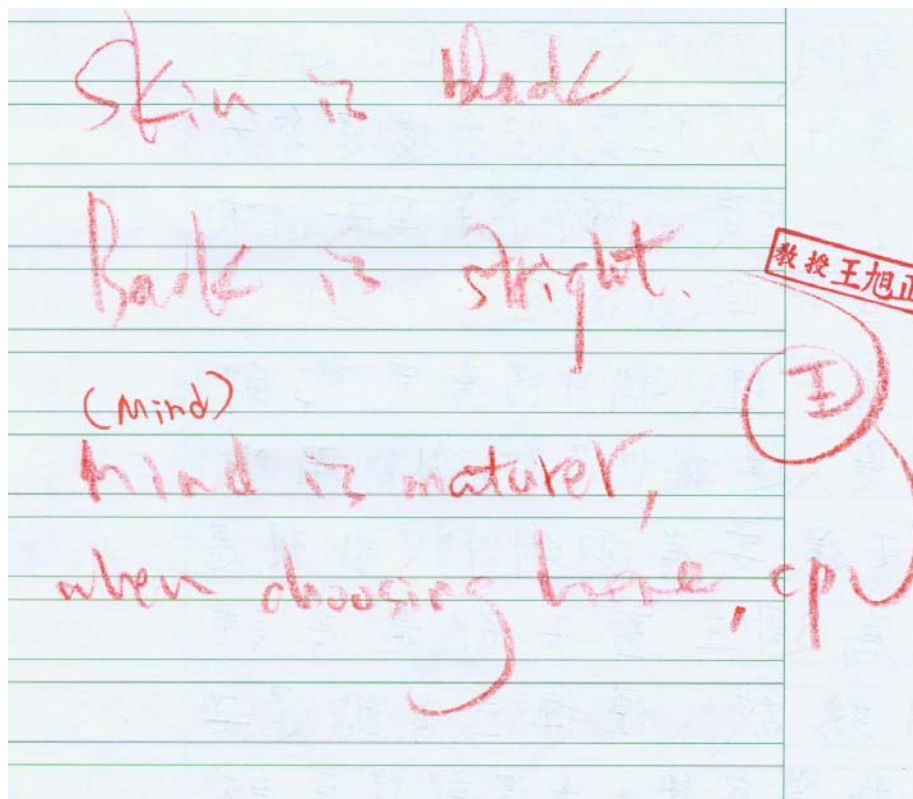 Skin is black
Back is stright.
教授王旭正
王
(Mind)
Mind is maturer,
when choosing here, cpu